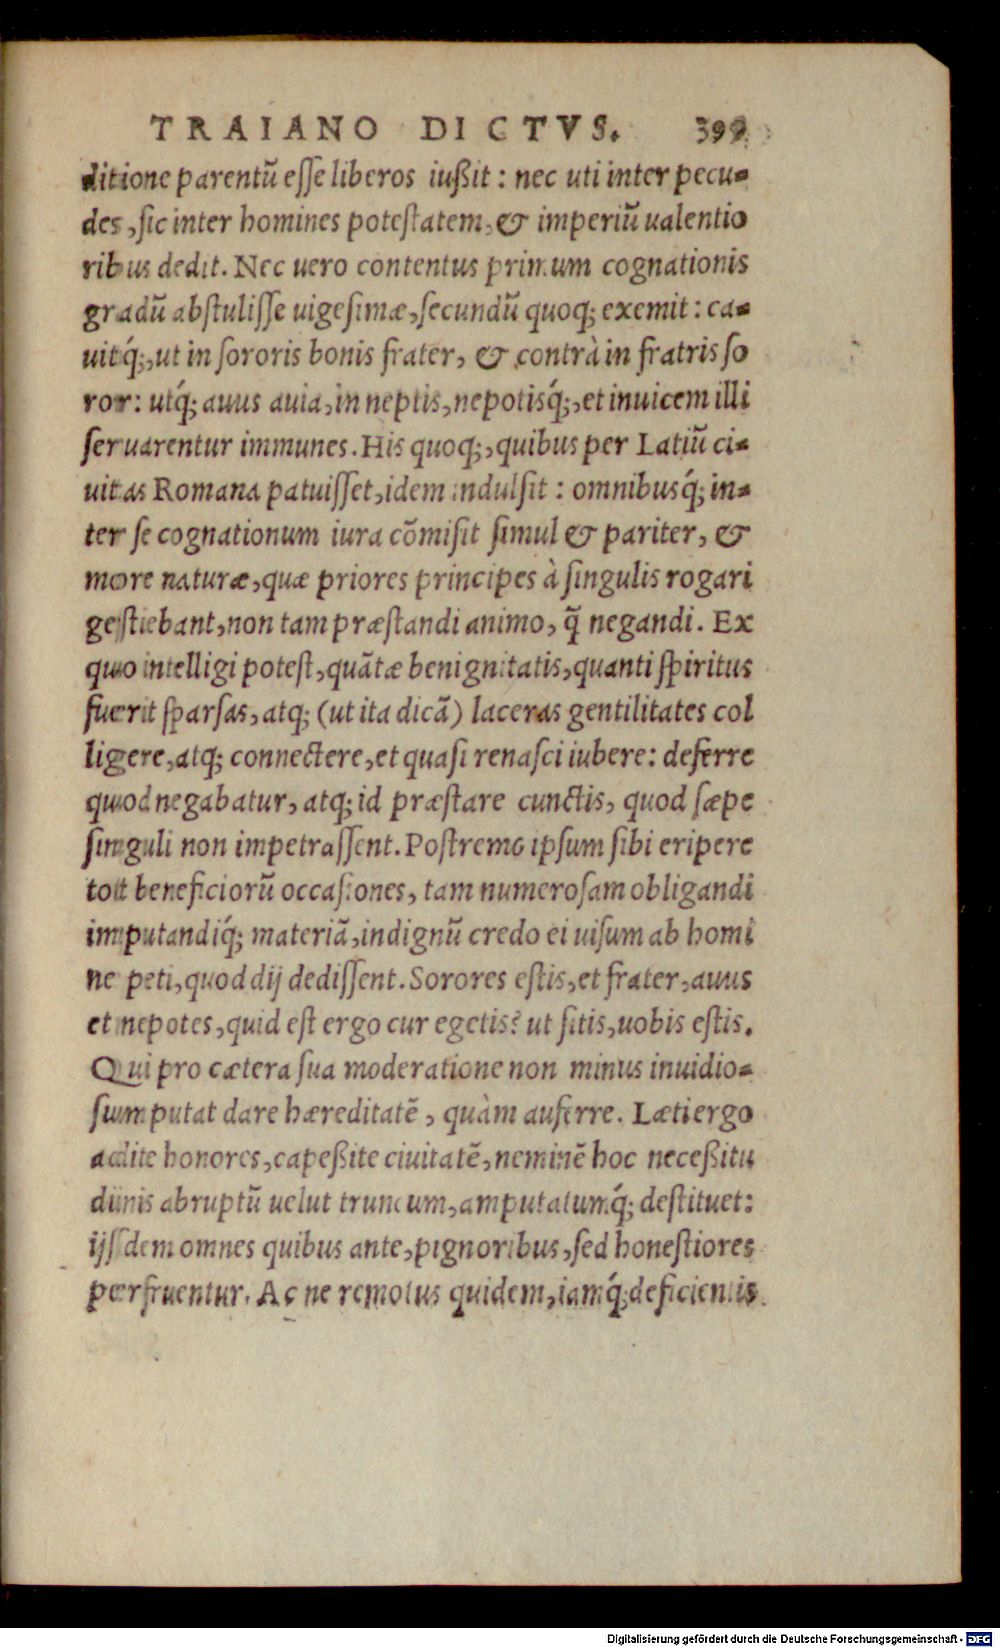 TRAIANO DICTVS. 399
ditione parentũ esse liberos iußit : nec uti inter pecu-
des, sic inter homines potestatem, & imperiũ ualentio
ribus dedit. Nec uero contentus primum cognationis
gradũ abstulisse uigesimæ, secundũ quoq; exemit : ca-
uitq́;, ut in sororis bonis frater, & contrà in fratris so
ror: utq́; auus auia, in neptis, nepotisq́;, et inuicem illi
seruarentur immunes. His quoq;, quibus per Latiũ ci-
uitas Romana patuisset, idem indulsit : omnibusq́; in-
ter se cognationum iura cõmisit simul & pariter, &
more naturæ, quæ priores principes à singulis rogari
gestiebant, non tam præstandi animo, q̃ negandi. Ex
quo intelligi potest, quãtæ benignitatis, quanti spiritus
fuerit sparsas, atq; (ut ita dicã) laceras gentilitates col
ligere, atq; connectere, et quasi renasci iubere: deferre
quod negabatur, atq; id præstare cunctis, quod sæpe
singuli non impetrassent. Postremo ipsum sibi eripere
tot beneficiorũ occasiones, tam numerosam obligandi
imputandiq́; materiã, indignũ credo ei uisum ab homi
ne peti, quod dij dedissent. Sorores estis, et frater, auus
et nepotes, quid est ergo cur egetis? ut sitis, uobis estis.
Qui pro cætera sua moderatione non minus inuidio-
sum putat dare hæreditatẽ, quàm auferre. Læti ergo
adite honores, capeßite ciuitatẽ, neminẽ hoc neceßitu
dinis abruptũ uelut truncum, amputatumq́; destituet:
ijsdem omnes quibus ante, pignoribus, sed honestiores
perfruentur. Ac ne remotus quidem, iamq́; deficientis
Digitalisierung gefördert durch die Deutsche Forschungsgemeinschaft - DFG